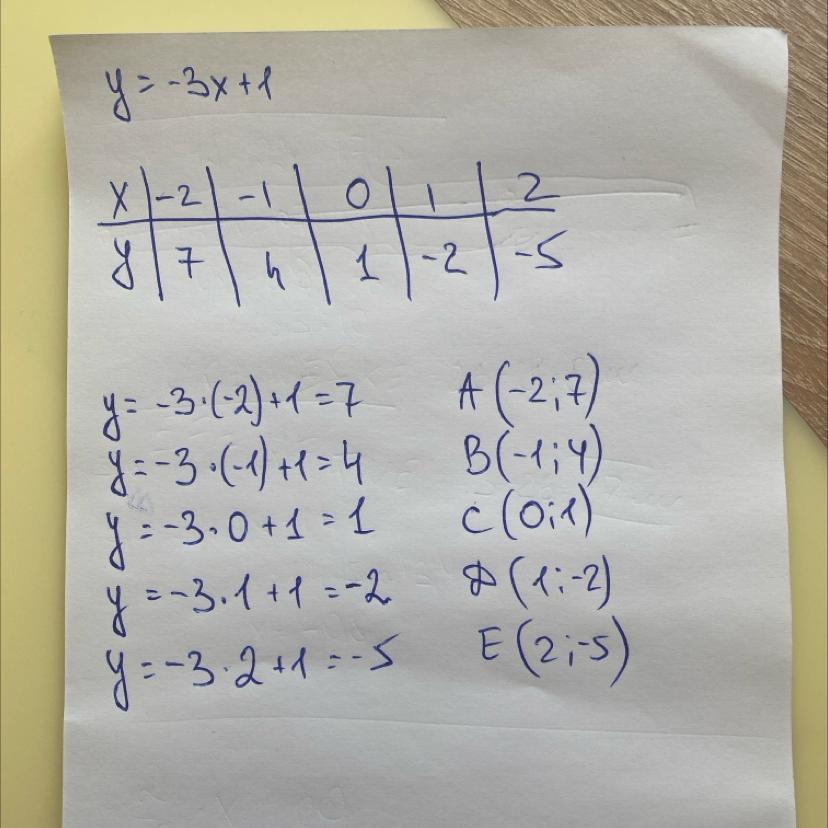 y = -3x+1
x | -2 | -1 | 0 | 1 | 2
y | 7 | 4 | 1 | -2 | -5
y = -3·(-2)+1=7 A (-2;7)
y = -3·(-1)+1=4 B (-1;4)
y = -3·0+1=1 C (0;1)
y = -3·1+1=-2 D (1;-2)
y = -3·2+1=-5 E (2;-5)